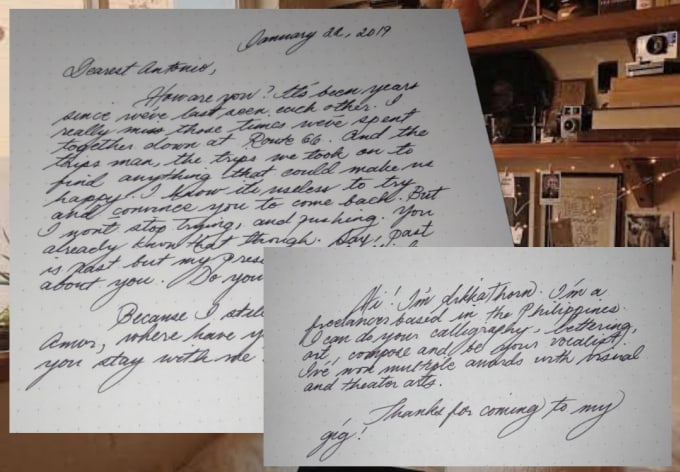 January 22, 2019
Dearest Antonio,
How are you? It's been years
since we've last seen each other. I
really miss those times we've spent
together down at Route 66. And the
trips man, the trips we took on to
find anything that could make us
happy. I know its useless to try
and convince you to come back. But
I wont stop trying, and pushing. You
already know that though. Say, past
is past but my prese
about you. Do you
Because I still
Amor, where have y
you stay with me
Hi! I'm Arkka Thorn. I'm a
freelancer based in the Philippines.
I can do your calligraphy, lettering,
art, compose and be your vocalist.
I've won multiple awards with visual
and theater arts.
Thanks for coming to my
gig!